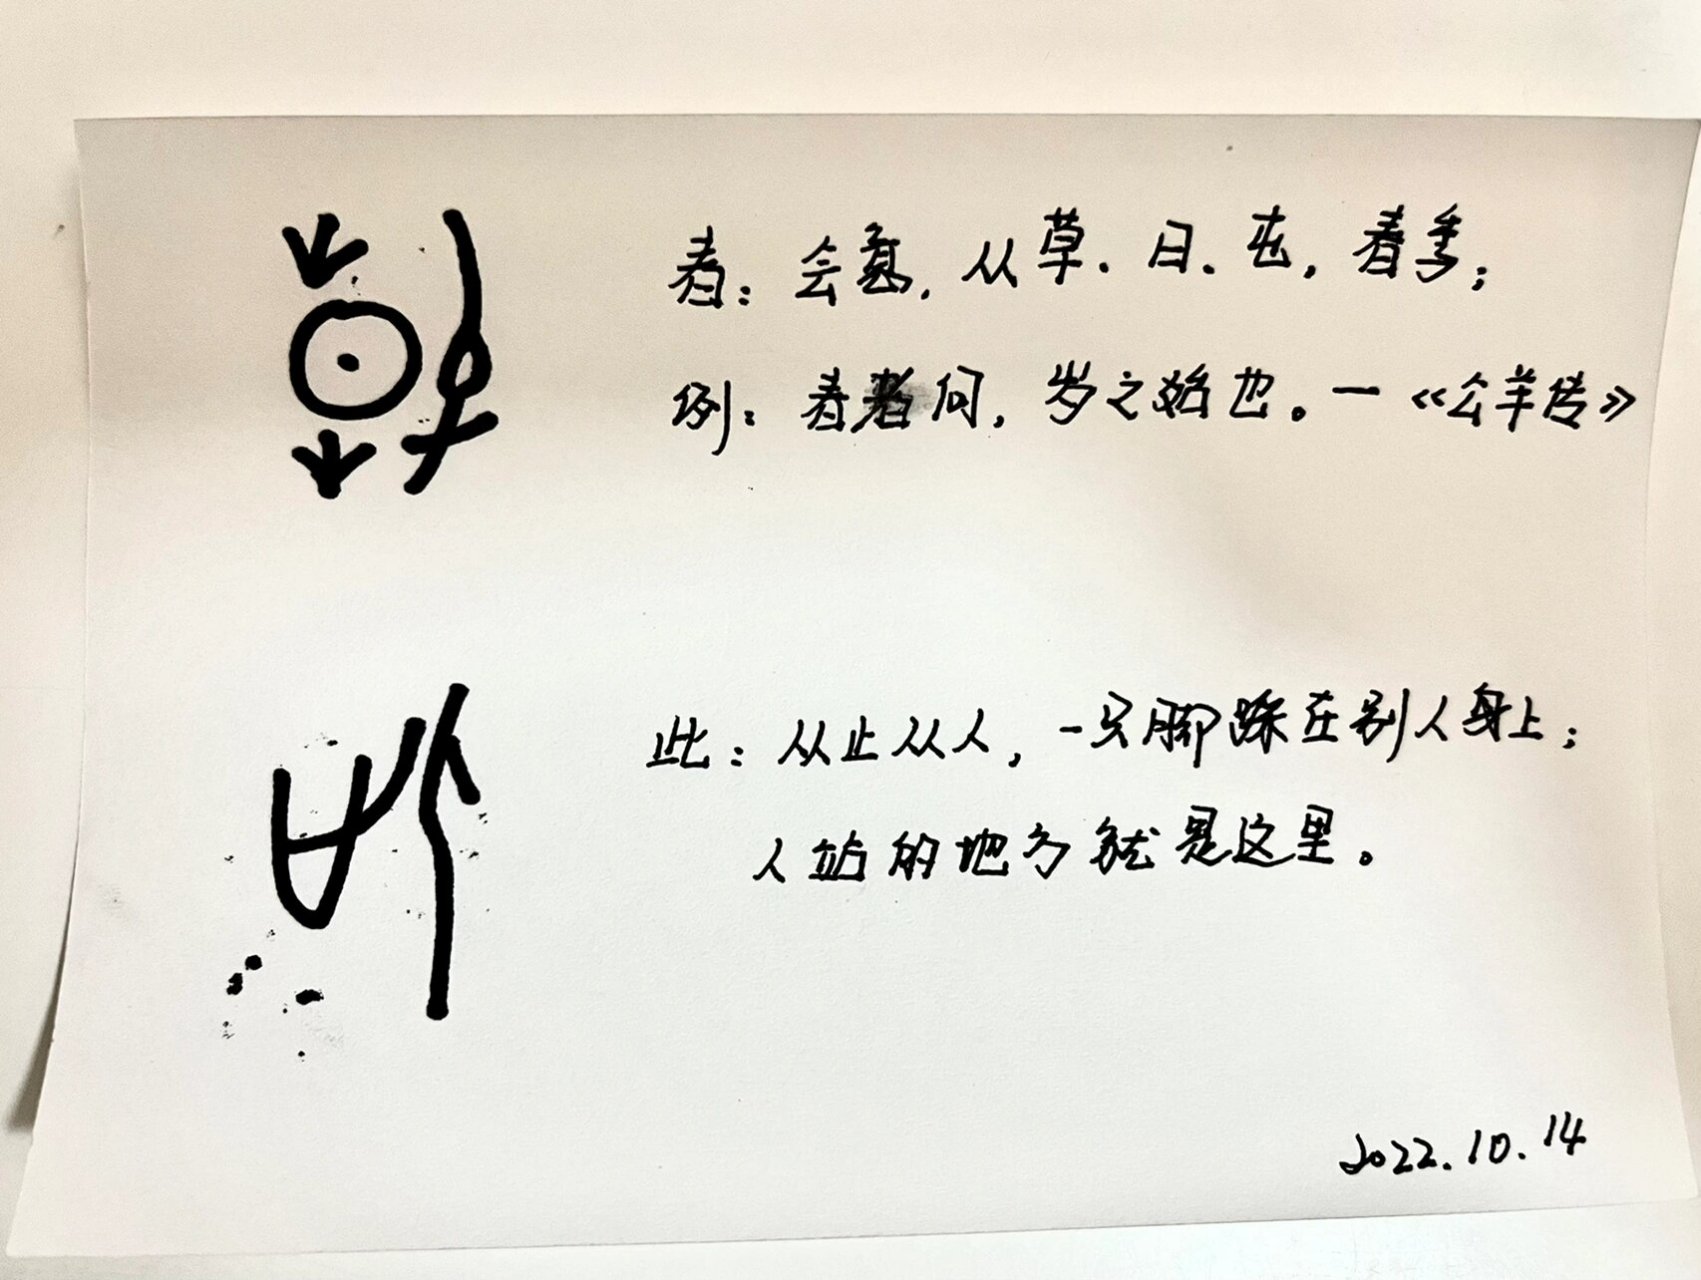 春：会意，从草、日、屯，春季；
例：春者何，岁之始也。—《公羊传》
此：从止从人，一只脚踩在别人身上；
人站的地方就是这里。
2022.10.14